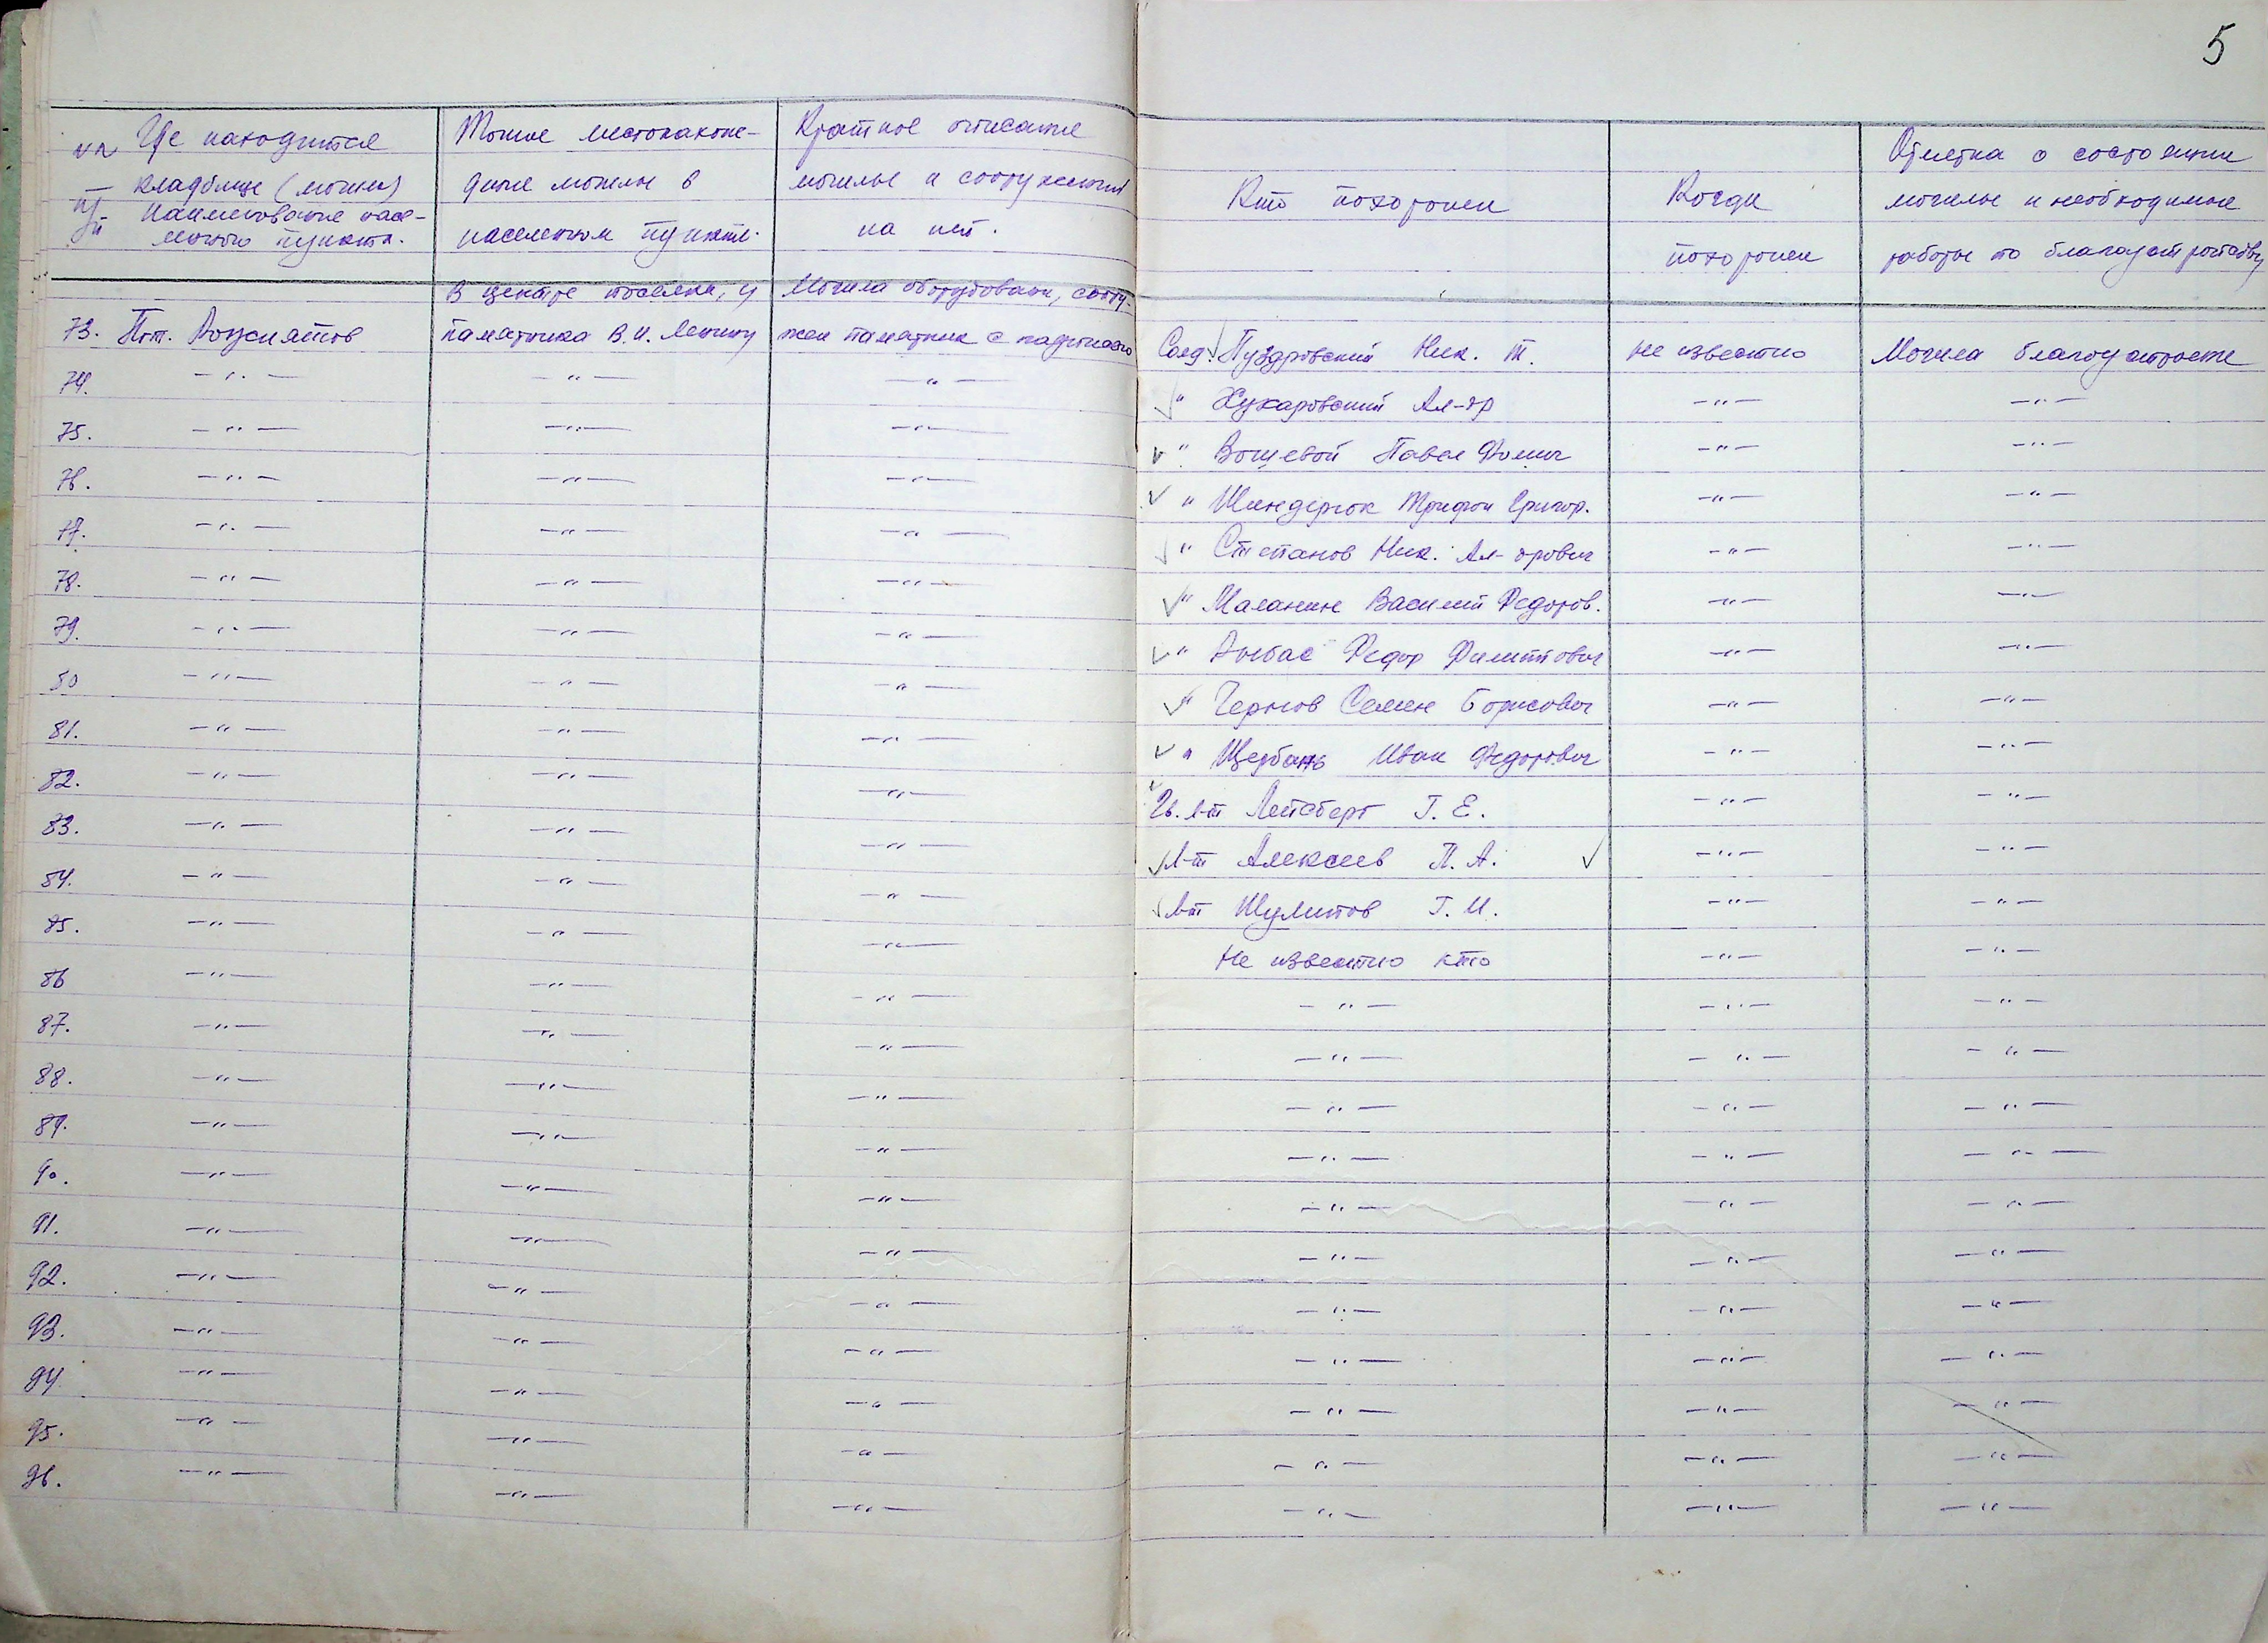 5
Где находится
кладбище (могила)
наименование насе-
ленного пункта.
Точное местонахож-
дение могилы в
населенном пункте.
Краткое описание
могилы и сооружений
на ней.
Кто похоронен
Когда
похоронен
Отметка о состоянии
могилы и необходимые
работы по благоустройству
В центре поселка, у Могила оборудована, соору-
73. Пгт. Рожнятов памятника В.И. Ленину жен памятник с надписью Солд. Пуздровский Ник. Т. не известно Могила благоустроена
74. -"- -"- -"- " Хухаровский Ал-др -"- -"-
75. -"- -"- -"- " Вощевой Павел Фомич -"- -"-
76. -"- -"- -"- " Шиндерюк Трифон Григор. -"- -"-
77. -"- -"- -"- " Степанов Ник. Ал-дрович -"- -"-
78. -"- -"- -"- " Маланин Василий Федоров. -"- -"-
79. -"- -"- -"- " Федор Филиппович -"- -"-
80 -"- -"- -"- " Чернов Семен Борисович -"- -"-
81. -"- -"- -"- " Щербань Иван Федорович -"- -"-
82. -"- -"- -"- Гв. л-т Лейсберг Г. Е. -"- -"-
83. -"- -"- -"- Л-т Алексеев П. А. -"- -"-
84. -"- -"- -"- Л-т Шулипов Г. И. -"- -"-
85. -"- -"- -"- Не известно кто -"- -"-
86 -"- -"- -"- -"- -"- -"-
87. -"- -"- -"- -"- -"- -"-
88. -"- -"- -"- -"- -"- -"-
89. -"- -"- -"- -"- -"- -"-
90. -"- -"- -"- -"- -"- -"-
91. -"- -"- -"- -"- -"- -"-
92. -"- -"- -"- -"- -"- -"-
93. -"- -"- -"- -"- -"- -"-
94. -"- -"- -"- -"- -"- -"-
95. -"- -"- -"- -"- -"- -"-
96. -"- -"- -"- -"- -"- -"-